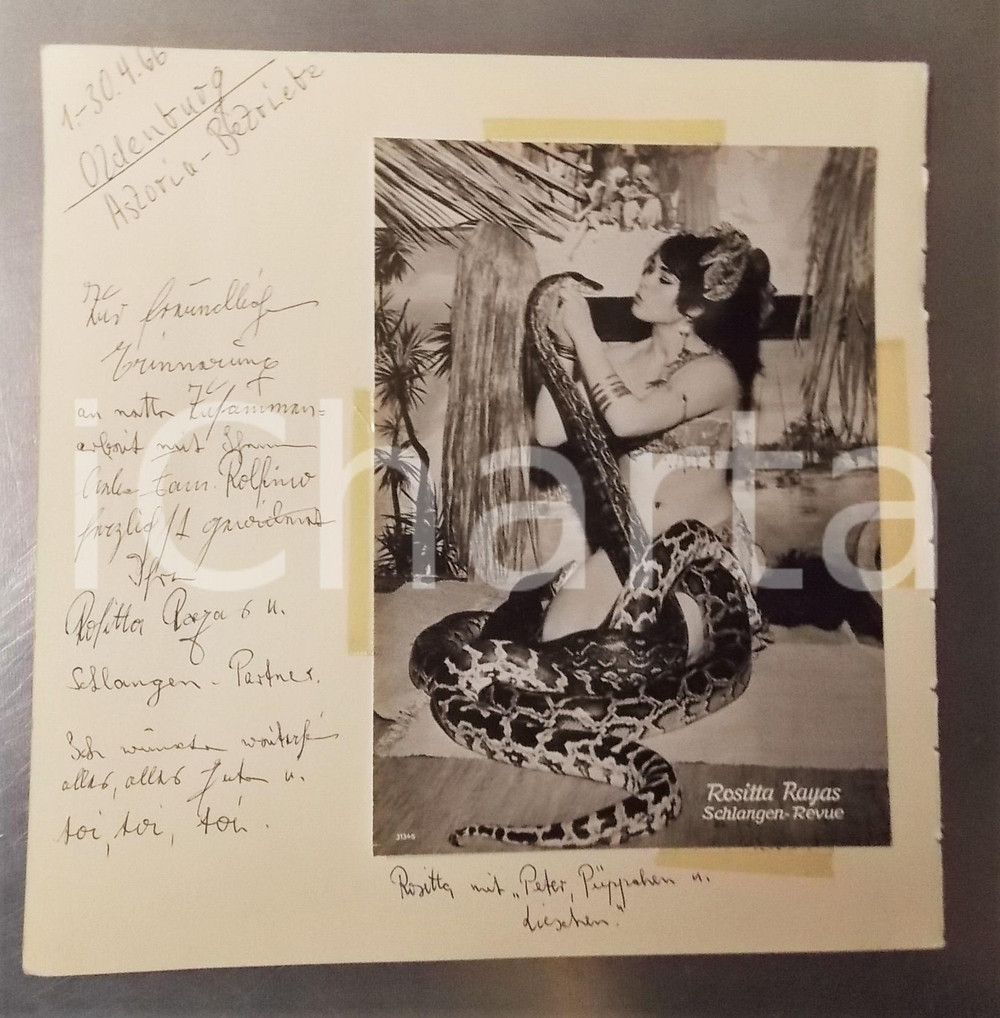 1.-30.4.66
Oldenburg
Astoria-Betriebe
Zur freundlichen
Erinnerung
an nette Zusammen-
arbeit mit Ihnen
Fam. Rolfino
herzlichst gewidmet
Ihre
Rositta Rayas u.
Schlangen-Partner.
Ich wünsche weiterhin
alles, alles Gute u.
toi, toi, toi.
Rositta Rayas
Schlangen-Revue
31346
Rositta mit „Peter, Püppchen u.
Lieschen."
iCharta